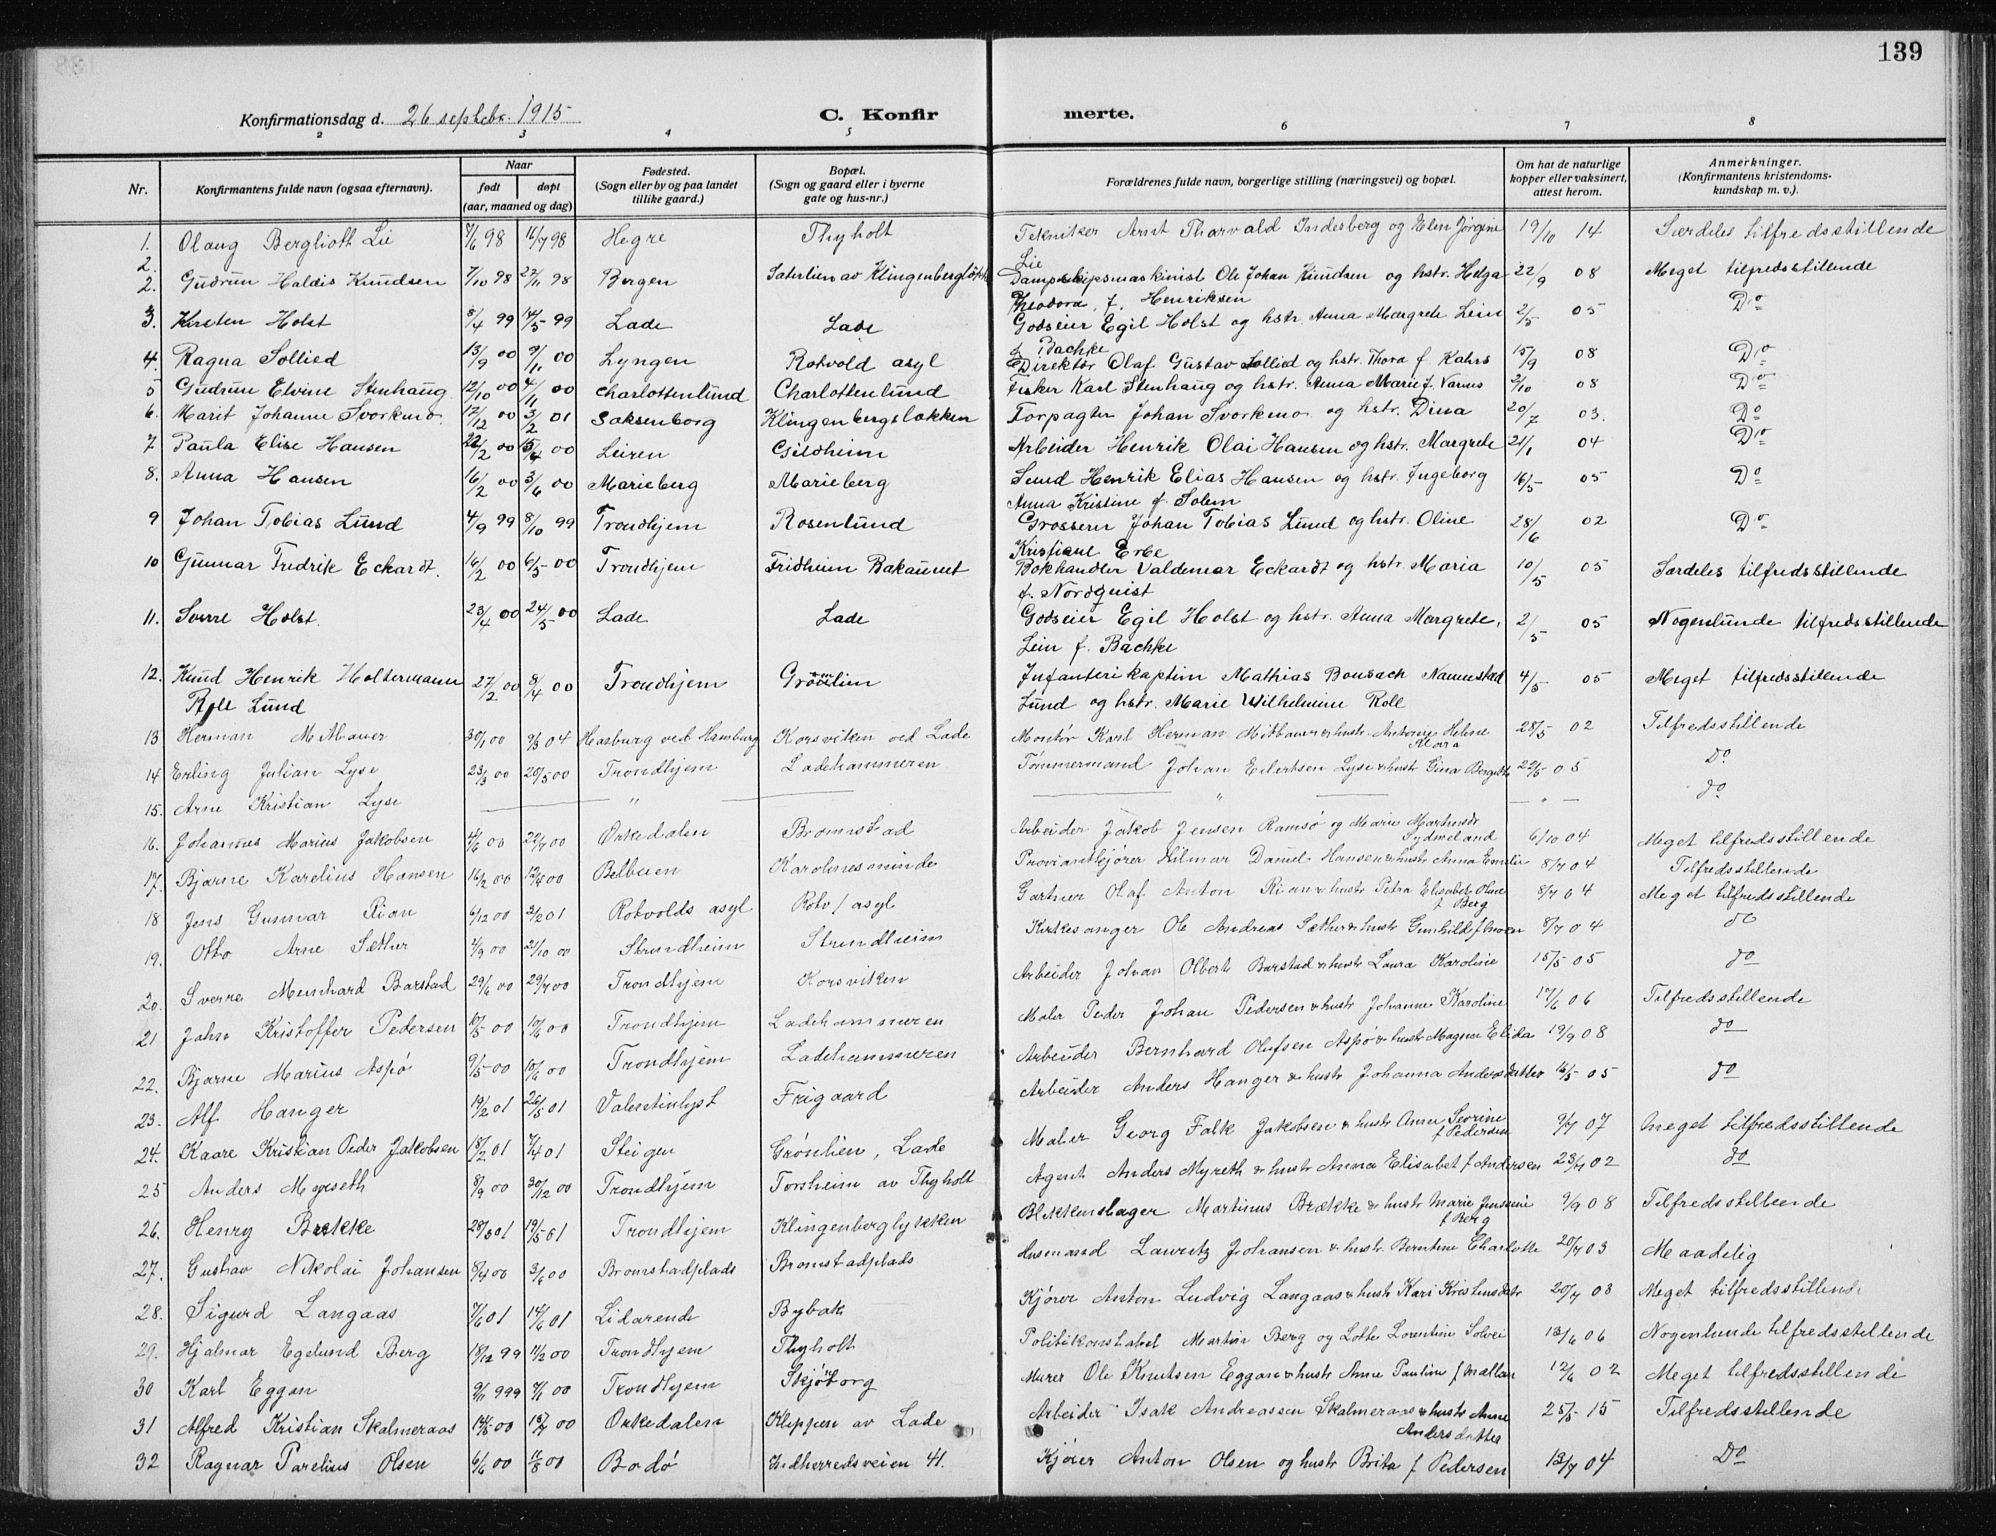 139
Konfirmationsdag d. 26 septebr. 1915
C. Konfirmerte.
2 3 4 5 6 7 8
Nr. Konfirmantens fulde navn (ogsaa efternavn). Naar født døpt (aar, maaned og dag) Fødested. (Sogn eller by og paa landet tillike gaard.) Bopæl. (Sogn og gaard eller i byerne gate og hus-nr.) Forældrenes fulde navn, borgerlige stilling (næringsvei) og bopæl. Om har de naturlige kopper eller vaksinert, attest herom. Anmerkninger. (Konfirmantens kristendoms-kundskap m. v.).
1. Olaug Bergliott Lie 7/6 98 16/7 98 Hegre Thyholt Tekniker Arnt Tharvald Indesberg og Elen Jørgine Lie 19/10 14 Særdeles tilfredsstillende
2.
2. Gudrun Haldis Knudsen 7/10 98 27/11 98 Bergen Sæterlien av Klingenbergløkk Dampskipsmaskinist Ole Johan Knudsen og hstr. Helga Theodora, f. Henriksen 22/9 08 Meget tilfredsstillende
3. Kirsten Holst 8/4 99 14/5 99 Lade Lade Godseier Egil Holst og hstr. Anna Margrete Lein f. Bachke 2/5 05 Do
4. Ragna Sollied 13/9 00 9/11 00 Lyngen Rotvold asyl Direktør Olaf Gustav Sollied og hstr. Thora f. Kahrs 15/9 08 Do
5 Gudrun Elvine Stenhaug 12/10 00 4/11 00 Charlottenlund Charlottenlund Fisker Karl Stenhaug og hstr. Anna Marie f. Varnes 2/10 08 Do
6. Marit Johanne Svorkmo. 12/12 00 3/2 01 Saksenborg Klingenbergsløkken Forpagter Johan Svorkmo og hstr. Dina 20/7 03. Do
7 Paula Elise Hansen 22/2 00 15/4 00 Leiren Gildheim Arbeider Henrik Olai Hansen og hstr. Margrete 21/1 04 Do
8. Anna Hansen 16/2 00 3/6 00 Marieberg Marieberg Smed Henrik Elias Hansen og hstr. Ingeborg Anna Kristine f. Solem 16/5 05 Do
9 Johan Tobias Lund 4/9 99 8/10 99 Trondhjem Rosenlund Grosserer Johan Tobias Lund og hstr. Oline Kristiane Erbe 28/6 02 Do
10 Gunnar Fredrik Eckardt. 16/2 00 6/5 00 Trondhjem Fridheim Bakaunet Bokhandler Valdemar Eckardt og hstr. Maria f. Nordquist 10/5 05 Særdeles tilfredsstillende
11. Sverre Holst. 23/4 00 24/5 00 Lade Lade Godseier Egil Holst og hstr. Anna Margrete, Lein f. Bachke 2/5 05 Nogenlunde tilfredsstillende
12. Knud Henrik Holtermann Roll Lund 27/2 00 8/4 00 Trondhjem Grønlien Infanterikaptein Mathias Bonsach Nannestad Lund og hstr. Marie Wilhelmine Roll 4/5 05 Meget tilfredsstillende
13 Herman M. Mauer 30/1 00 9/3 04 Hasburg ved Hamburg Korsviken ved Lade Montør Karl Herman Mitbauer & hustr. Antonie Helene Klara 28/5 02 Tilfredsstillende
14 Erling Julian Lyse 23/3 00 20/5 00 Trondhjem Ladehammeren Tømmermand Johan Eilertsen Lyse & hustr Gina Bergitte 22/5 05 Do
15. Arne Kristian Lyse — " — — " — — " — do
16. Johannes Marius Jakobsen 4/6 00 22/7 00 Orkedalen Bromstad Arbeider Jakob Jensen Ramsø og Marie Martinsdr Sydmeland 6/10 04 Meget tilfredsstillende
17. Bjarne Karelius Hansen 16/2 00 12/4 00 Belbuen Karolinesminde Proviantkjører Hilmar Daniel Hansen & hustr Anna Emilie 8/7 04 Tilfredsstillende
18 Jens Gunnar Rian 6/12 00 3/2 01 Rotvolds asyl Rotv/asyl Gartner Olaf Anton Rian & hustr Petra Elisabet Oline f Berg 8/7 04 Meget tilfredsstillende
19. Otto Arne Sæther 4/9 00 21/10 00 Strindheim Strindheim Kirkesanger Ole Andreas Sæther & hustr Gunhild f Moen 8/7 04 do
20. Sverre Meinhard Barstad 29/6 00 29/7 00 Trondhjem Korsviken Arbeider Johan Olbert Barstad & hustr Laura Karoline 15/5 05 do
21 John Kristoffer Pedersen 17/5 00 10/6 00 Trondhjem Ladehammeren Maler Peder Johan Pedersen & hustr Johanne Karoline 17/6 06 Tilfredsstillende
22. Bjarne Marius Aspø 9/5 00 10/6 00 Trondhjem Ladehammeren Arbeider Bernhard Olufsen Aspø & hustr Magna Elida 19/9 08 do
23. Alf Hanger 19/2 01 26/5 01 Valentinlyst Frigaard Arbeider Anders Hanger & hustr Johanna Andersdatter 16/5 05 do
24. Kaare Kristian Peder Jakobsen 18/2 01 7/4 01 Steigen Grønlien, Lade Maler Georg Falk Jakobsen & hustr Anne Sevrine f Pedersen 9/7 07 Meget tilfredsstillende
25 Anders Myreth 8/9 00 30/12 00 Trondhjem Torsheim av Thyholt Agent Anders Myreth & hustr Anna Elisabet f Andersen 23/7 02 do
26. Henry Brekke 28/3 01 19/5 01 Trondhjem Klingenberglykken Blikkenslager Martinus Brække & hustr Marie Jensine f Berg 9/9 08 Tilfredsstillende
27. Gustav Nikolai Johansen 8/4 00 3/6 00 Bromstadplads Bromstadplads Husmand Lauritz Johansen & hustr. Berntine Charlotte 20/7 03 Maadelig
28. Sigurd Langaas 7/6 01 14/6 01 Lidarende Bybak Kjører Anton Ludvig Langaas & hustr Kari Kristensdtr 20/7 03 Meget tilfredsstillende
29. Hjalmar Egelund Berg 18/12 99 11/2 00 Trondhjem Thyholt Politikonstabel Martin Berg og Lotte Lorentine Solvei 13/6 06 Nogenlunde tilfredsstillende
30 Karl Eggan 9/11 999 7/1 00 Trondhjem Skjøtorg Murer Ole Knutsen Eggan & hustr Anne Pauline f Mællan 12/6 02 Meget tilfredsstillende
31 Alfred Kristian Skalmeraas 14/5 00 15/7 00 Orkedalen Kleppen av Lade Arbeider Isak Andreassen Skalmeraas & hustr Anne Andersdatter 25/5 15 Tilfredsstillende
32 Ragnar Parelius Olsen 6/6 00 11/8 00 Bodø Indherredsveien 41. Kjører Anton Olsen og hustr Brita f Pedersen 13/7 04 Do